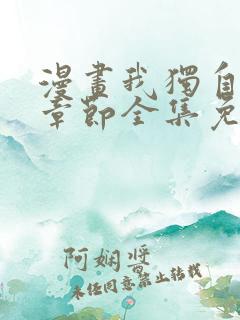 漫畫我獨自
章節全集免
阿娴將
未经同意禁止转载